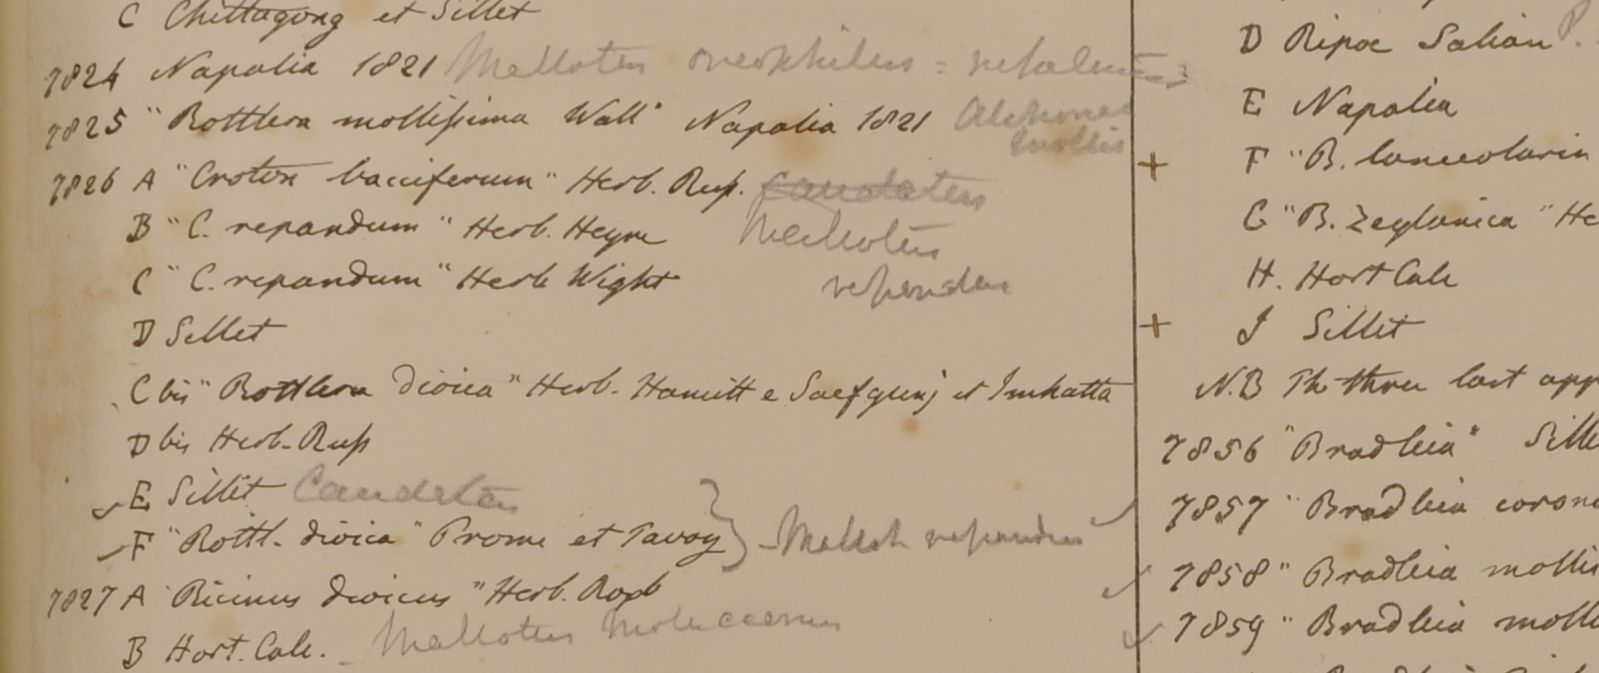 C Chittagong et Sillet
7824 Napalia 1821 Mallotus oreophilus = nepalensis
7825 "Rottlera mollissima Wall" Napalia 1821 Alchornea
mollis
7826 A "Croton bacciferum" Herb. Rusp. caudatus
B "C. repandum" Herb. Heyne Mallotus
C "C. repandum" Herb Wight repandus
D Sillet
C bis "Rottlera dioica" Herb. Hamilt e Saefgunj et
D bis Herb. Rusp
E Sillet Caudatus
F "Rottl. dioica" Prome et Tavoy } Mallot. repandus
7827 A Ricinus dioicus" Herb. Roxb
B Hort. Calc. Mallotus Moluccanus
D Ripae Salian
E Napalia
+ F "B. lanceolaria
G "B. Zeylanica" He
H. Hort Calc
+ J Sillet
N.B Th three last app
7856 "Bradleia" Sille
7857 "Bradleia coron
7858 "Bradleia molli
7859 "Bradleia molli